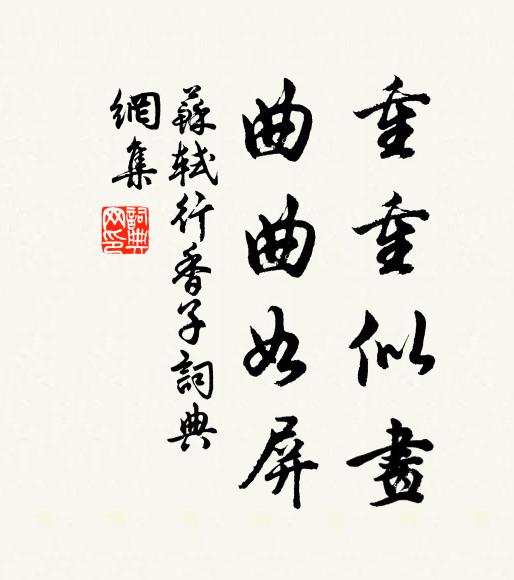 重重似畫
曲曲如屏
蘇軾行香子詞典
網集
詞典網印